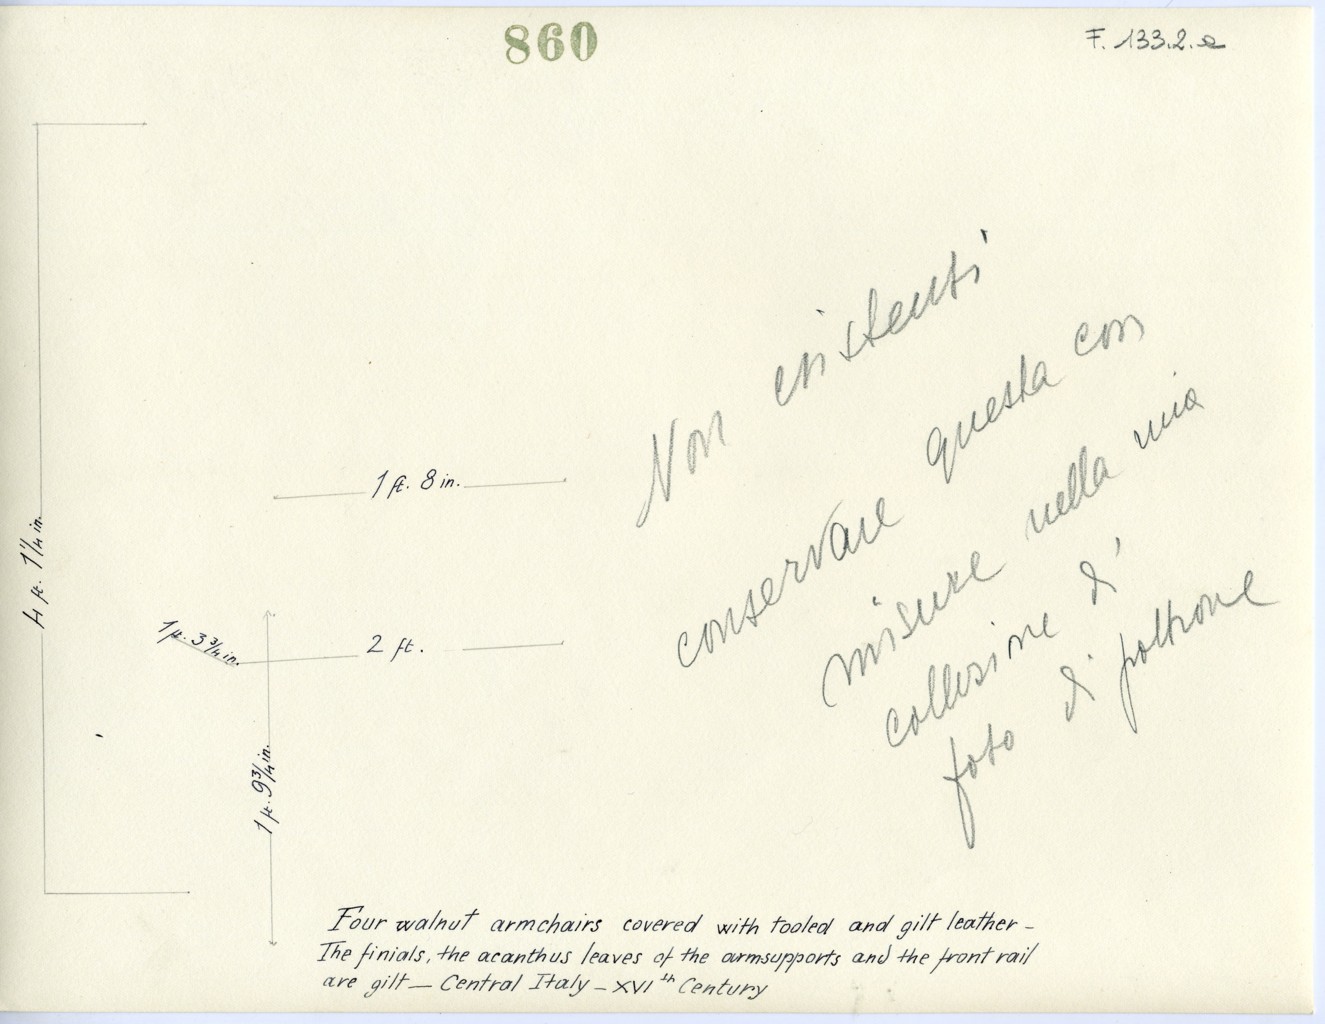 860
F. 133.2.a
4 ft. 1 1/4 in.
1 ft. 8 in.
1 ft. 3 3/4 in.
2 ft.
1 ft. 9 3/4 in.
Non esistenti
conservare questa con
misure nella mia
collezione di
foto di poltrone
Four walnut armchairs covered with tooled and gilt leather –
The finials, the acanthus leaves of the armsupports and the front rail
are gilt — Central Italy – XVIth Century